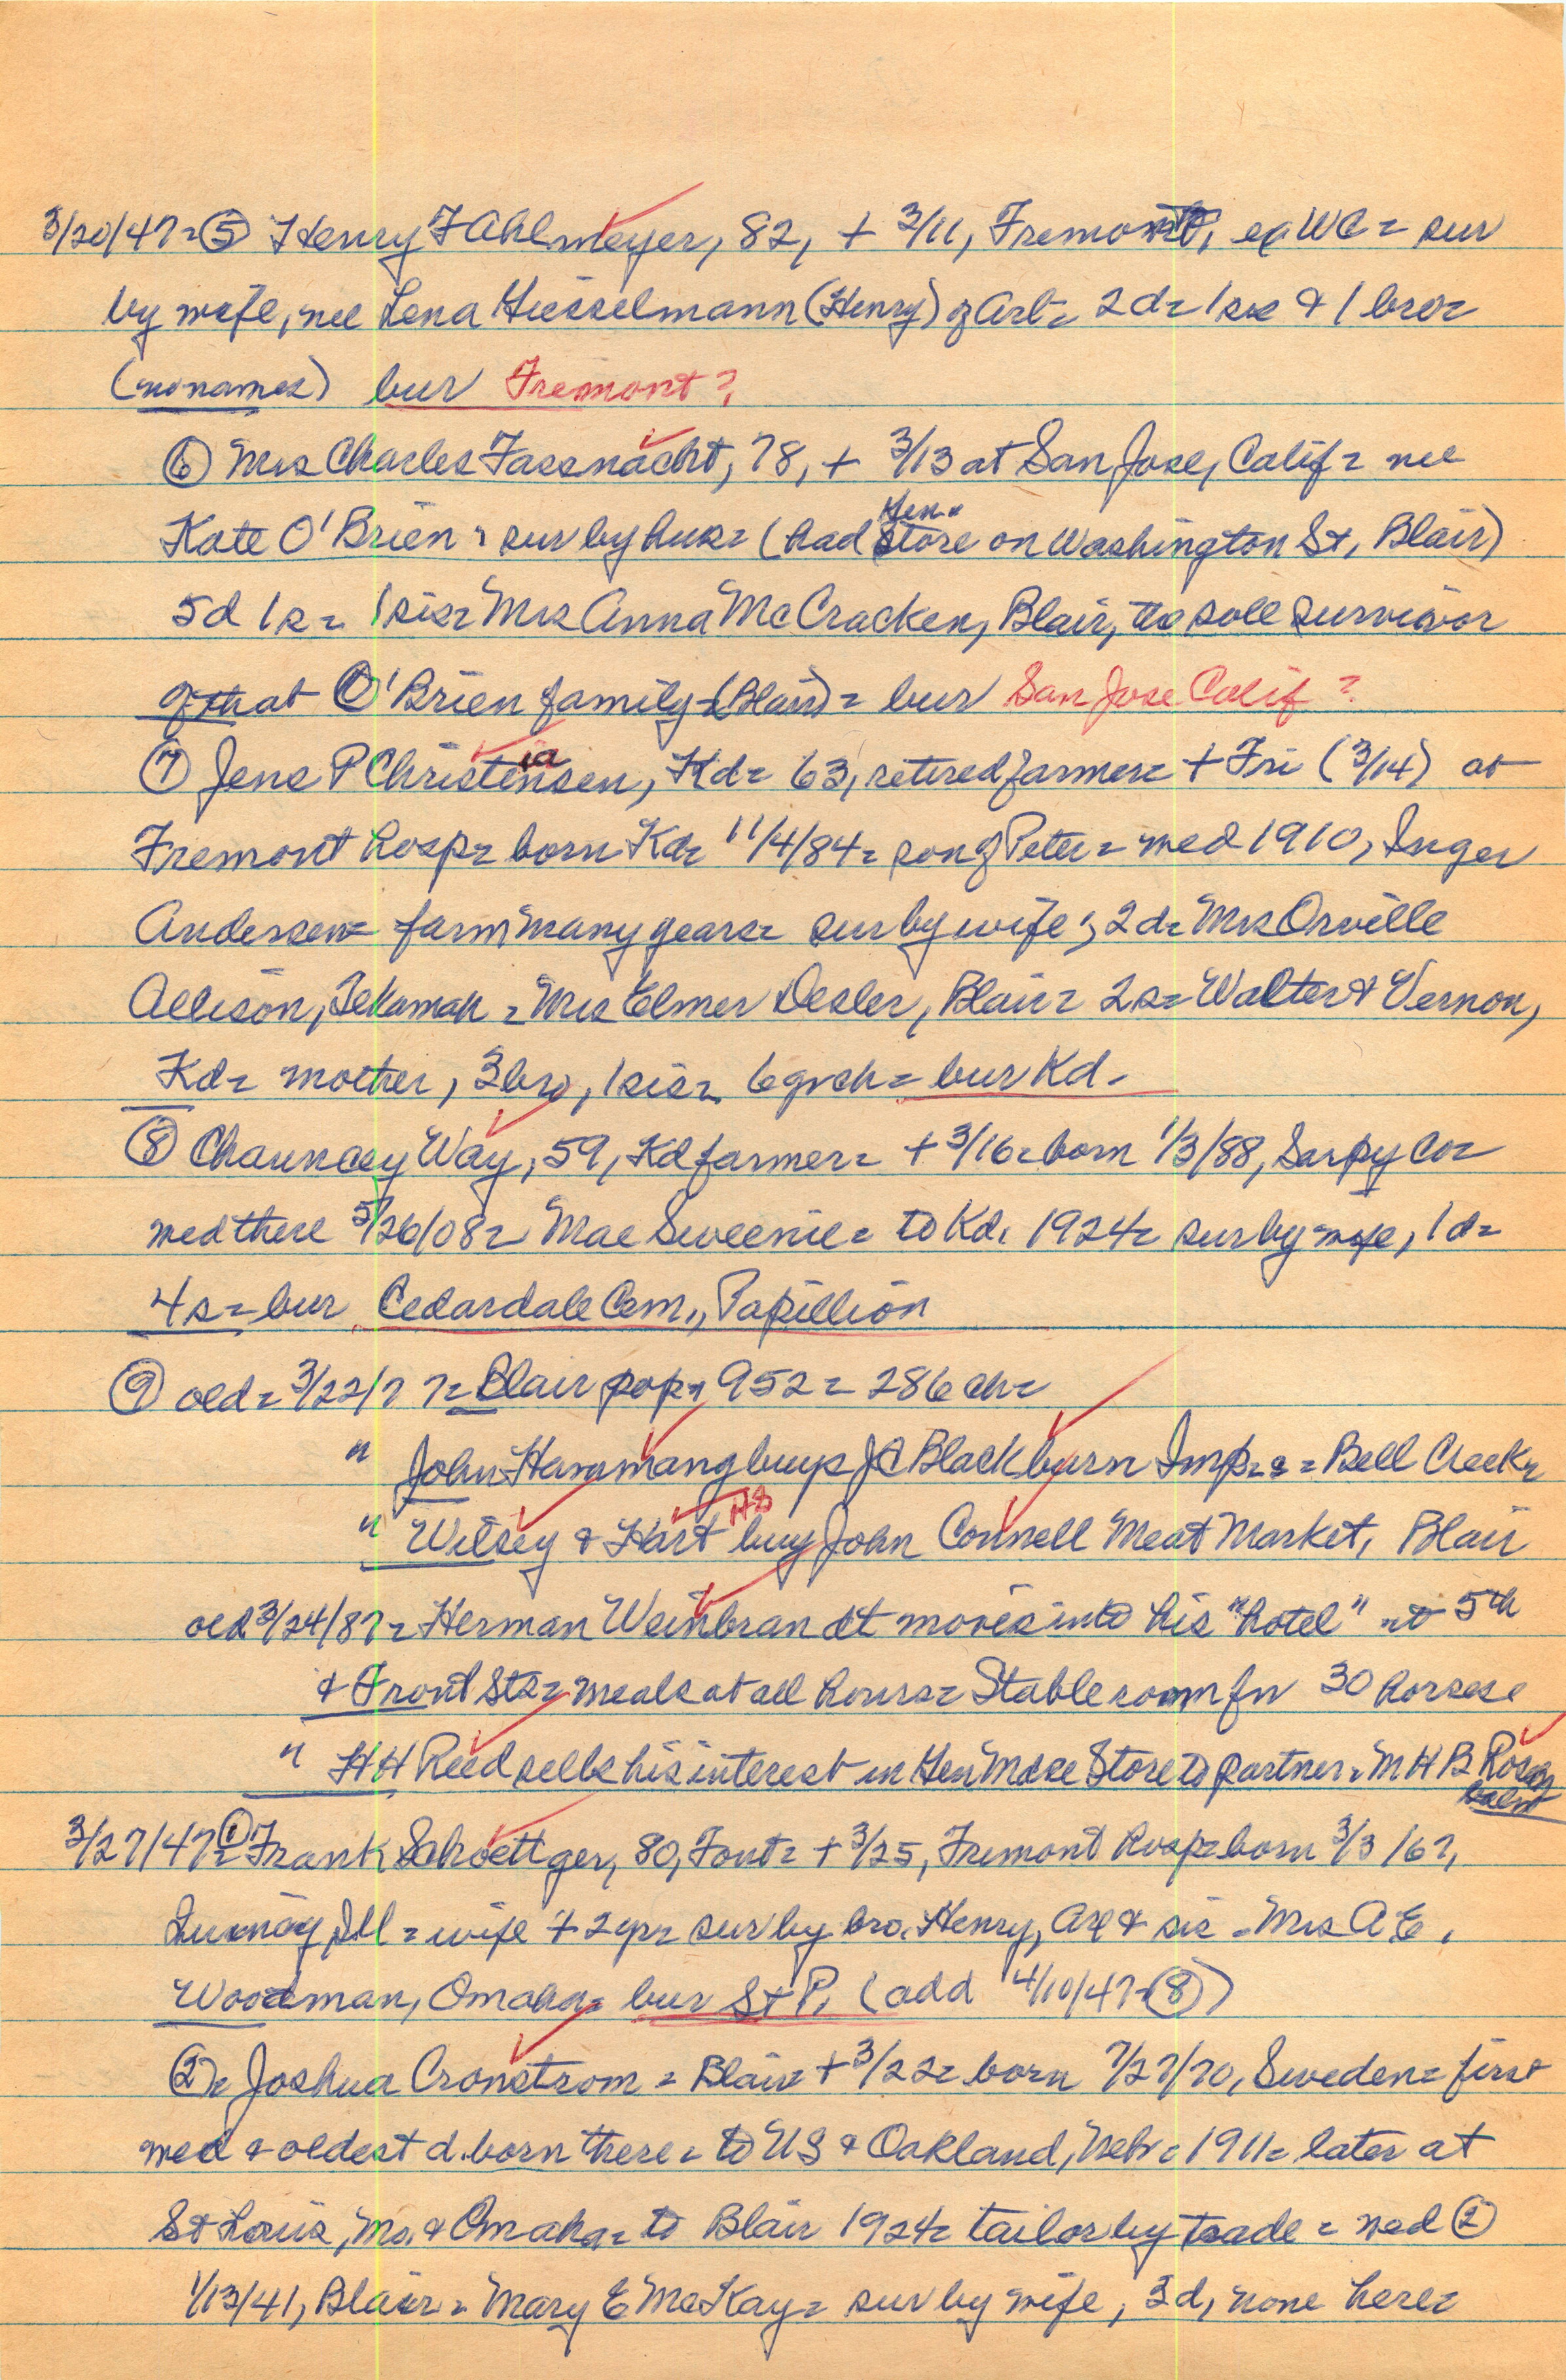 3/20/47= ⑤ Henry F Ahlmeyer, 82, + 3/11, Fremont, ex WC= sur
by wife, nee Lena Giesselmann (Henry) of Arl= 2d= 1 sis & 1 bro=
(no names) bur Fremont?
⑥ Mrs Charles Fassnacht, 78, + 3/13 at San Jose, Calif= nee
Kate O'Brien= sur by hus= (had Gen. Store on Washington St, Blair)
5d 1s= 1 sis= Mrs Anna McCracken, Blair, the sole survivor
of that O'Brien family= (Blair)= bur San Jose Calif?
⑦ Jens P Christensen, Kd= 63, retired farmer= + Fri (3/14) at
Fremont Hosp= born Kd= 11/4/84= son of Peter= med 1910, Inger
Andersen= farm many years= sur by wife, 2d= Mrs Orville
Allison, Tekamah= Mrs Elmer Desler, Blair= 2s= Walter & Vernon,
Kd= mother, 3 bro, 1 sis= 6 grch= bur Kd.
⑧ Chauncey Way, 59, Kd farmer= + 3/16= born 1/3/88, Sarpy Co=
med there 5/26/08= Mae Sweenie= to Kd. 1924= sur by wife, 1d=
4s= bur Cedardale Cem., Papillion
⑨ old= 3/22/77= Blair pop= 952= 286 ch=
" John Hammang buys J C Blackburn Imp= = Bell Creek=
" Wilsey & Hart HS buy John Connell Meat Market, Blair
old 3/24/87= Herman Weinbrandt moves into his "hotel" at 5th
& Front Sts= meals at all hours= Stable room for 30 horses=
" HH Reed sells his interest in Gen Mdse Store to partner= M H B Rosen
balm
3/27/47= ① Frank Schoettger, 80, Font= + 3/25, Fremont Hosp= born 3/3/67,
Ill= wife + 2 yr= sur by bro. Henry, Arl & sis= Mrs A E.
Woodman, Omaha= bur St P. (add 4/10/47-⑧)
②= Joshua Cronstrom= Blair= + 3/22= born 7/27/70, Sweden= first
med & oldest d. born there= to US & Oakland, Nebr= 1911= later at
St Louis, Mo. & Omaha= to Blair 1924= tailor by trade= med ②
1/13/41, Blair= Mary E McKay= sur by wife, 3d, none here=